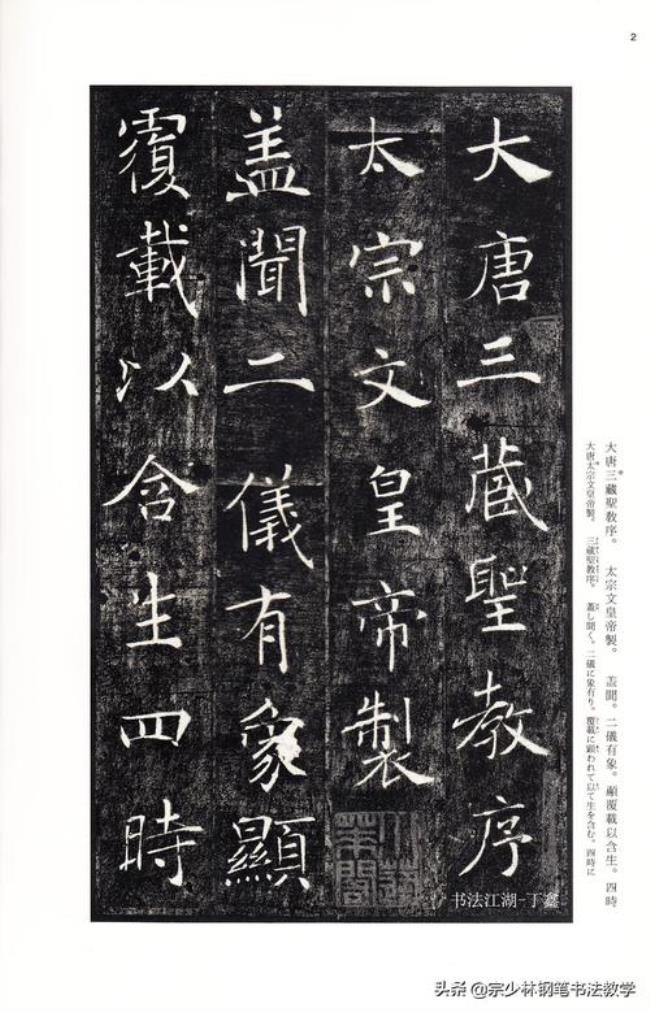 2
大唐三蔵聖教序
太宗文皇帝製
盖聞二儀有象顯
覆載以含生四時
大唐三蔵聖教序。　太宗文皇帝製。　蓋聞。二儀有象。顯覆載以含生。四時
大唐太宗文皇帝製。　三蔵聖教序。　蓋し聞く。二儀に象有り。覆載に顕われて以て生を含む。四時に
书法江湖-丁鑫
头条 @宗少林钢笔书法教学